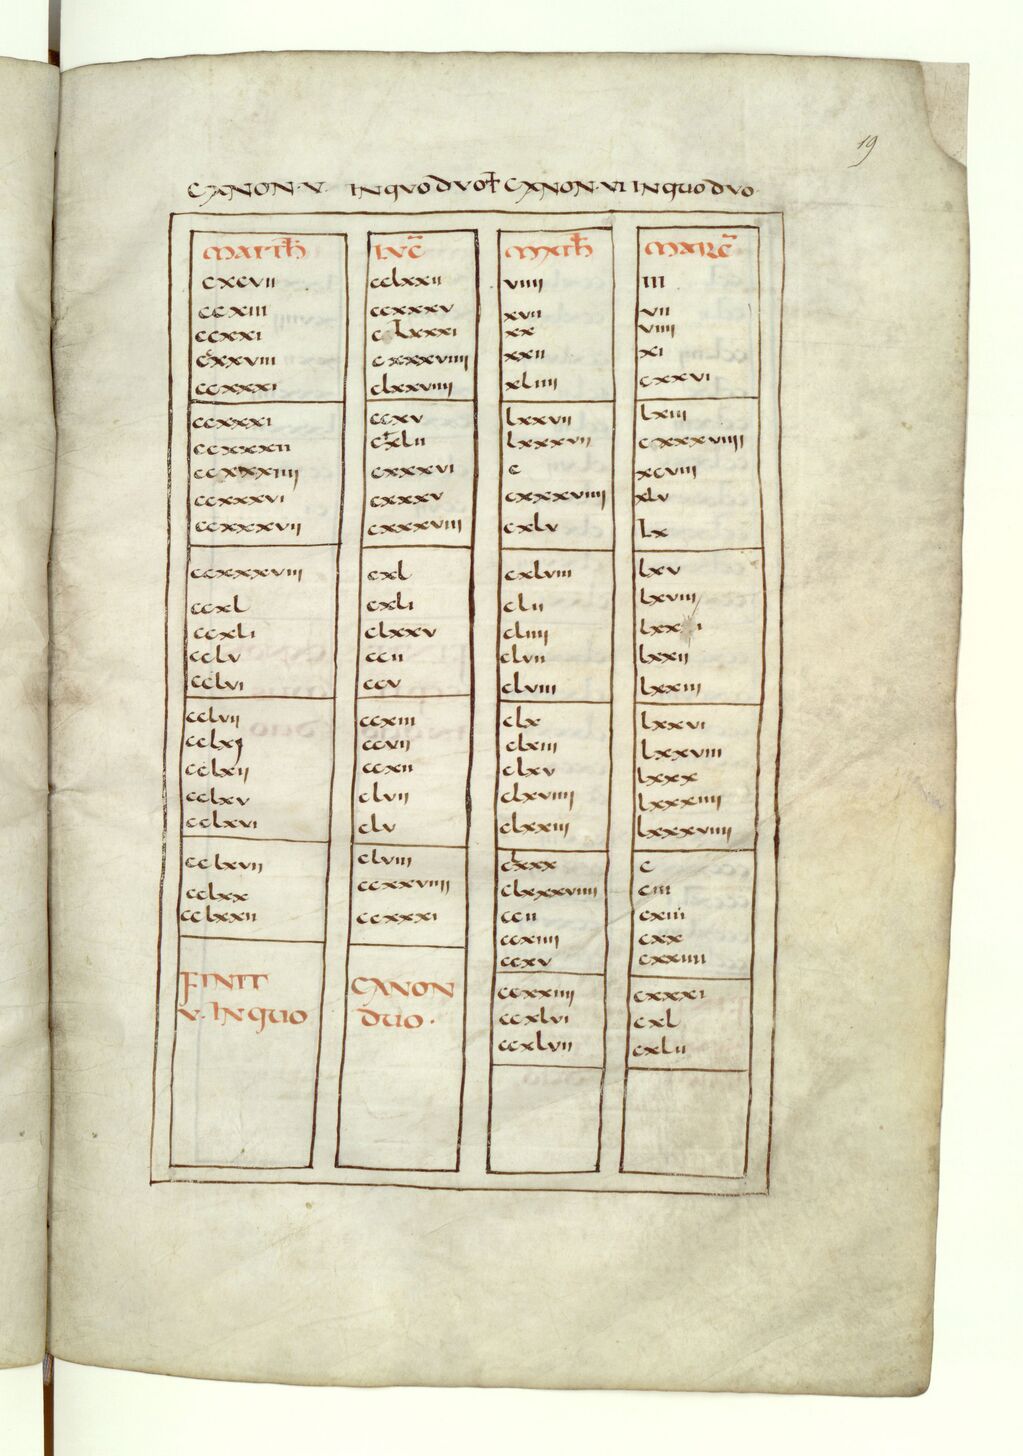 19
CANON·V· IN QVO DVO CANON·VI IN QUO DVO
MATTH LVC MATH MARC
cxcvii cclxxii viiii iii
ccxiii ccxxxv xvii vii
ccxxi clxxxi xx viiii
ccxxviii cxxxviiii xxii xi
ccxxxi clxxviiii xliiii cxxvi
ccxxxi ccxv lxxvii lxiii
ccxxxii cxlii lxxxvii cxxxviiii
ccxxxiiii cxxxvi c xcviii
ccxxxvi cxxxv cxxxviiii xlv
ccxxxvii cxxxviii cxlv lx
ccxxxviii cxl cxlviii lxv
ccxl cxli clii lxviii
ccxli clxxv cliiii
cclv ccii clvii lxxii
cclvi ccv clviii lxxiii
cclvii ccxiii clx lxxvi
cclxi ccvii clxiii lxxviii
cclxii ccxii clxv lxxx
cclxv clvii clxviiii lxxxiiii
cclxvi clv clxxiii lxxxviiii
cclxvii clviii clxxx c
cclxx ccxxviiii clxxxviiii ciii
cclxxii ccxxxi ccii cxiii
ccxiiii cxx
ccxv cxxiiii
FINIT CANON ccxxiiii cxxxi
V· IN QUO DUO· ccxlvi cxl
ccxlvii cxlii